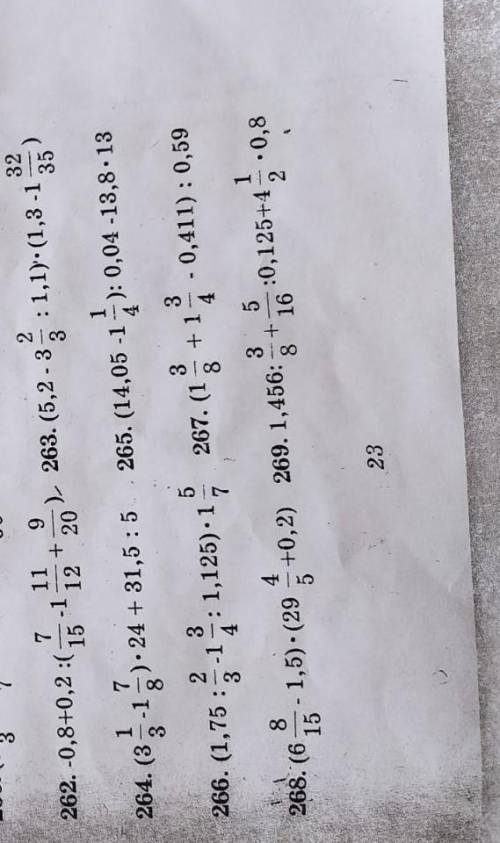 262. -0,8+0,2 :(7/15 -1 11/12 + 9/20) 263. (5,2 - 3 2/3 : 1,1)·(1,3 -1 32/35)
264. (3 1/3 -1 7/8)·24 + 31,5 : 5 265. (14,05 -1 1/4): 0,04 -13,8·13
266. (1,75 : 2/3 -1 3/4 : 1,125)·1 5/7 267. (1 3/8 + 1 3/4 - 0,411) : 0,59
268. (6 8/15 - 1,5)·(29 4/5 +0,2) 269. 1,456: 3/8 + 5/16 :0,125+4 1/2 ·0,8
23